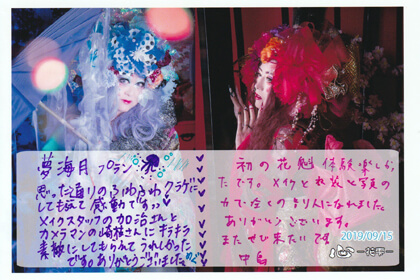 夢海月プラン
思った通りのふゆふわクラゲに
してもらえて感動です
メイクスタッフの加治さんと
カメラマンの崎枝さんにキラキラ
素敵にしてもらえてうれしかった
ですありがとうございました
初の花魁体験楽しかっ
たです。メイクと衣装と写真の
力で全くの別人になれました。
ありがとうございます。
また ぜひ来たいです
中島
2019/09/15
心-花雫-